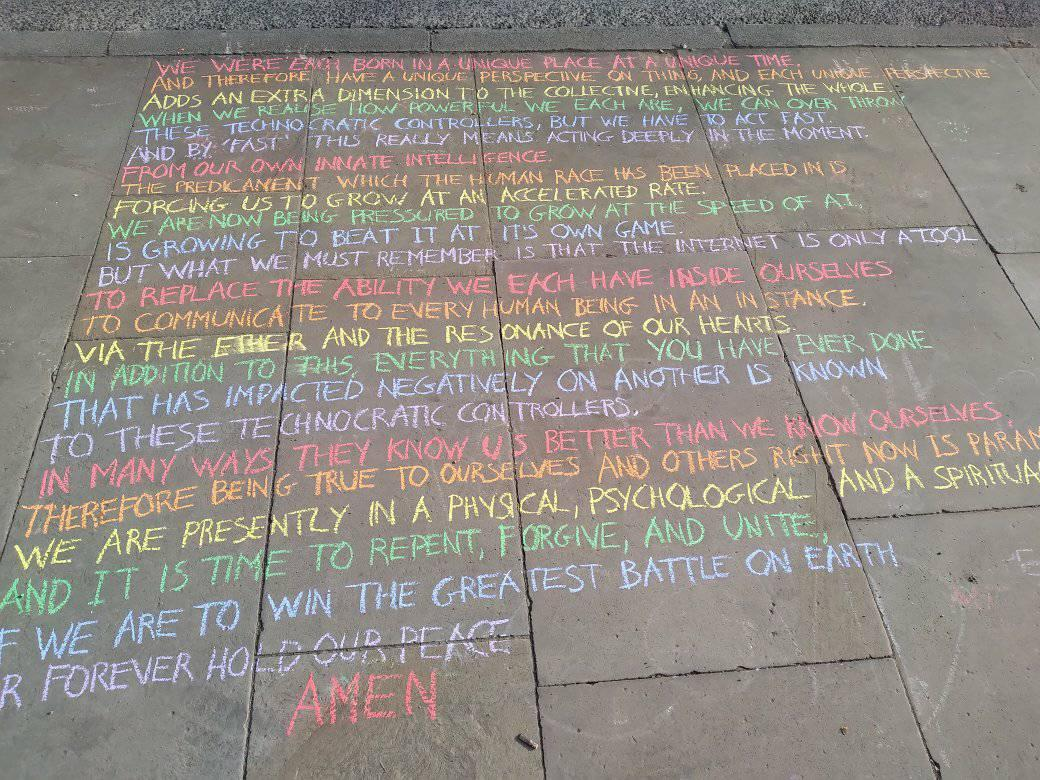 WE WERE EACH BORN IN A UNIQUE PLACE AT A UNIQUE TIME.
AND THEREFORE HAVE A UNIQUE PERSPECTIVE ON THING, AND EACH UNIQUE PERSPECTIVE
ADDS AN EXTRA DIMENSION TO THE COLLECTIVE, ENHANCING THE WHOLE.
WHEN WE REALISE HOW POWERFUL WE EACH ARE, WE CAN OVER THROW
THESE TECHNOCRATIC CONTROLLERS, BUT WE HAVE TO ACT FAST.
AND BY 'FAST' THIS REALLY MEANS ACTING DEEPLY IN THE MOMENT.
FROM OUR OWN INNATE INTELLIGENCE.
THE PREDICAMENT WHICH THE HUMAN RACE HAS BEEN PLACED IN IS
FORCING US TO GROW AT AN ACCELERATED RATE.
WE ARE NOW BEING PRESSURED TO GROW AT THE SPEED OF A.I.,
IS GROWING TO BEAT IT AT IT'S OWN GAME.
BUT WHAT WE MUST REMEMBER IS THAT THE INTERNET IS ONLY A TOOL
TO REPLACE THE ABILITY WE EACH HAVE INSIDE OURSELVES
TO COMMUNICATE TO EVERY HUMAN BEING IN AN INSTANCE.
VIA THE ETHER AND THE RESONANCE OF OUR HEARTS.
IN ADDITION TO THIS, EVERYTHING THAT YOU HAVE EVER DONE
THAT HAS IMPACTED NEGATIVELY ON ANOTHER IS KNOWN
TO THESE TECHNOCRATIC CONTROLLERS.
IN MANY WAYS THEY KNOW US BETTER THAN WE KNOW OURSELVES.
THEREFORE BEING TRUE TO OURSELVES AND OTHERS RIGHT NOW IS PARAM
WE ARE PRESENTLY IN A PHYSICAL, PSYCHOLOGICAL AND A SPIRITUA
AND IT IS TIME TO REPENT, FORGIVE, AND UNITE,
F WE ARE TO WIN THE GREATEST BATTLE ON EARTH
R FOREVER HOLD OUR PEACE
AMEN